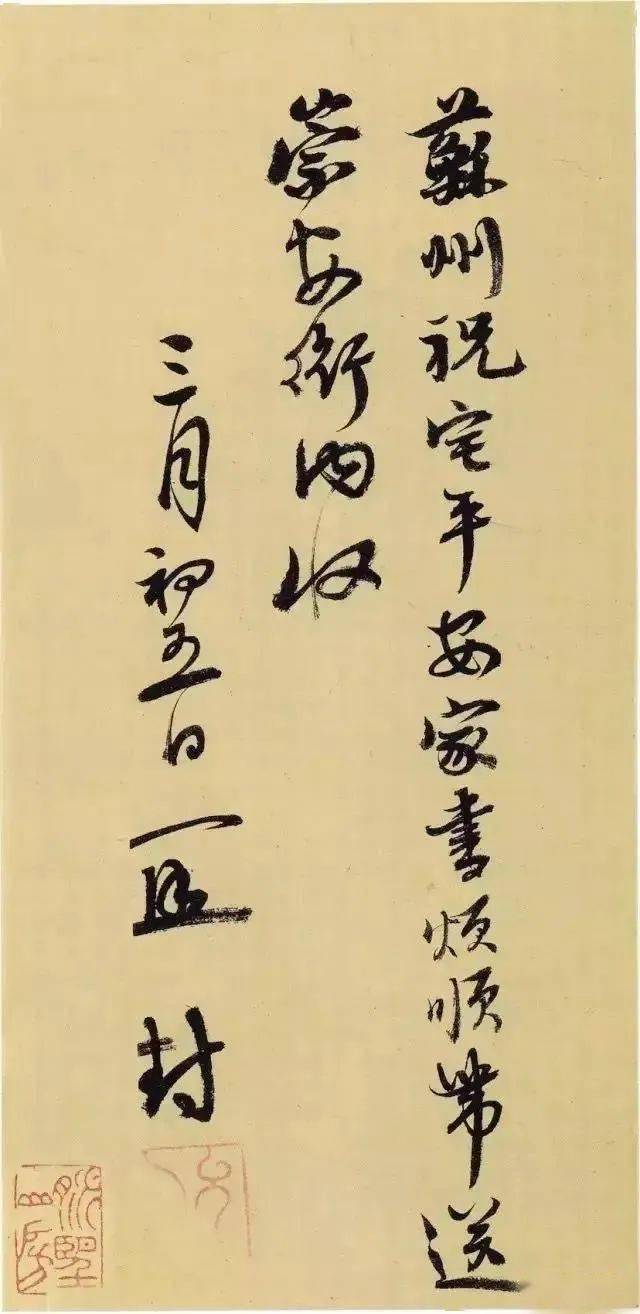 蘇州祝宅平安家書煩順帶送
崇安衙內收
三月初五日 封